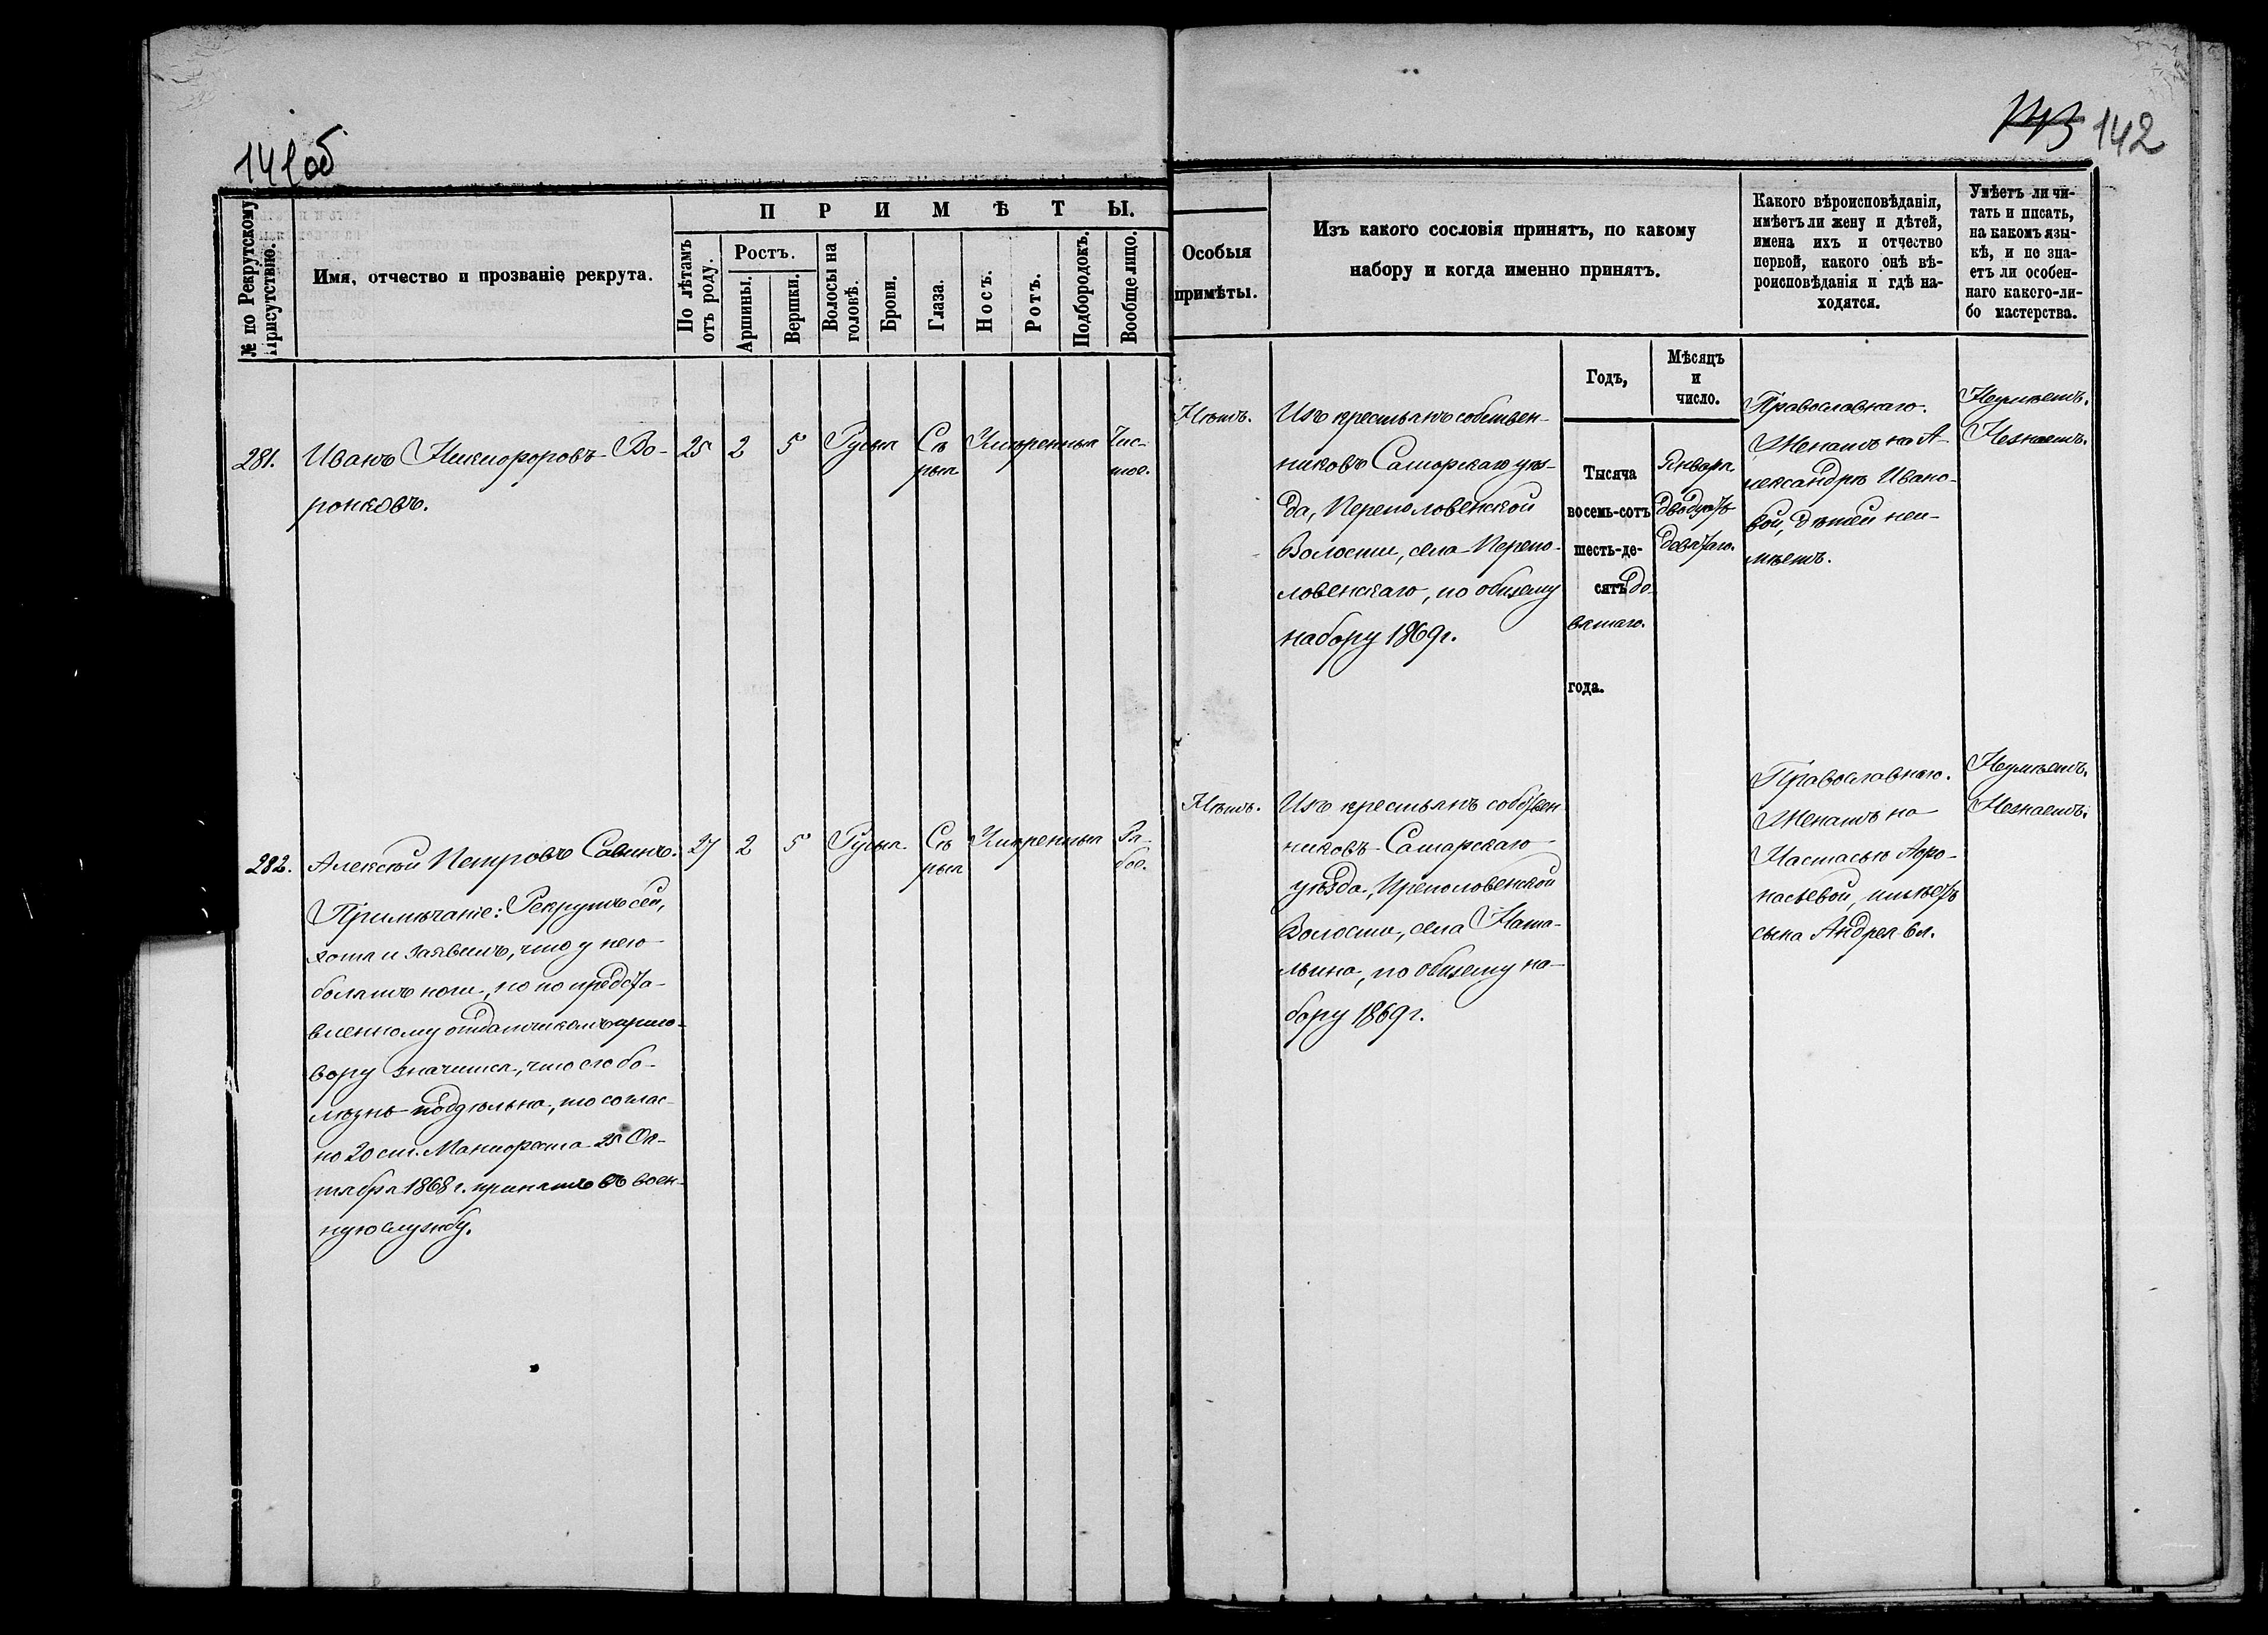 141об
143 142
№ по Рекрутскому Присутствію.
Имя, отчество и прозваніе рекрута.
ПРИМѢТЫ.
По лѣтамъ отъ роду.
Ростъ.
Аршины.
Вершки.
Волосы на головѣ.
Брови.
Глаза.
Носъ.
Ротъ.
Подбородокъ.
Вообще лицо.
Особыя
примѣты.
Изъ какого сословія принятъ, по какому
набору и когда именно принятъ.
Какого вѣроисповѣданія,
имѣетъ ли жену и дѣтей,
имена ихъ и отчество
первой, какого онѣ вѣ-
роисповѣданія и гдѣ на-
ходятся.
Умѣетъ ли чи-
тать и писать,
на какомъ язы-
кѣ, и не зна-
етъ ли особен-
наго какого-ли-
бо мастерства.
Годъ,
Мѣсяцъ
и
число.
281.
Иванъ Никифоровъ Во-
ронковъ.
25 2 5 Русыя
Сѣ-
рыя
Умѣренныя
Чис-
тое.
Нѣтъ.
Изъ крестьянъ собствен-
никовъ Самарскаго уѣз-
да, Преполовенской
Волости, села Препо-
ловенскаго, по общему
набору 1869 г.
Тысяча
восемь-сотъ
шесть-де-
сятъ де-
вятаго.
года.
Января
двадцать
девятаго.
Православнаго.
Женатъ на А-
лександрѣ Ивано-
вой, дѣтей неи-
мѣетъ.
Неумѣетъ.
Незнаетъ.
282.
Алексѣй Петровъ Савинъ.
Примѣчаніе: Рекрутъ сей,
хотя и заявилъ, что у него
болятъ ноги, но по предста-
вленному отдатчикомъ приго-
вору значится, что его бо-
лѣзнь поддѣльна, то соглас-
но 20 ст. Манифеста 25 Ок-
тября 1868 г. принятъ въ воен-
ную службу.
27 2 5 Русыя
Сѣ-
рыя
Умѣренныя
Ря-
бое.
Нѣтъ.
Изъ крестьянъ собствен
никовъ Самарскаго
уѣзда, Преполовенской
Волости, села Ната-
льина, по общему на-
бору 1869 г.
Православнаго.
Женатъ на
Настасьѣ Афо-
насьевой, имѣетъ
сына Андрея 6 л.
Неумѣетъ.
Незнаетъ.